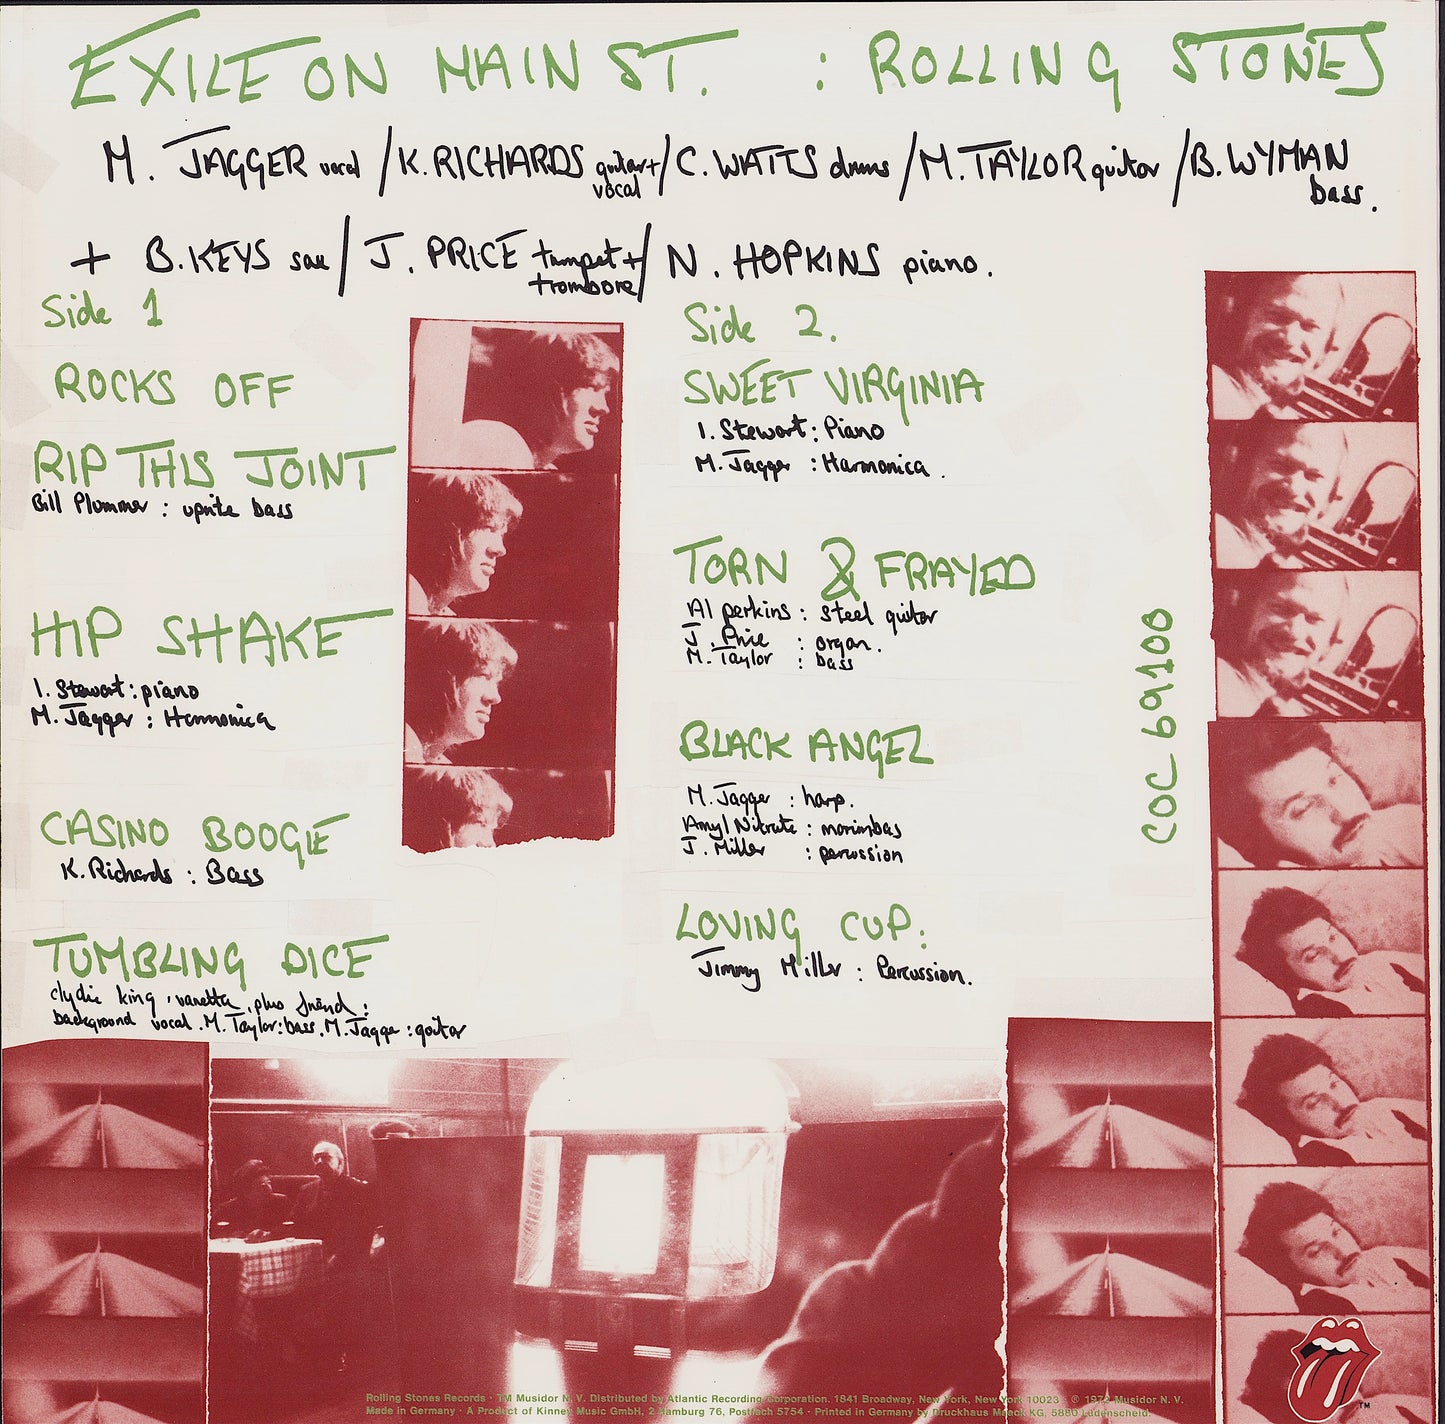 EXILE ON MAIN ST. : ROLLING STONES
M. JAGGER vocal / K. RICHARDS guitar + vocal / C. WATTS drums / M. TAYLOR guitar / B. WYMAN bass.
+ B. KEYS sax / J. PRICE trumpet + trombone / N. HOPKINS piano.
Side 1
ROCKS OFF
RIP THIS JOINT
Bill Plummer : uprite bass
HIP SHAKE
I. Stewart : piano
M. Jagger : Harmonica
CASINO BOOGIE
K. Richards : Bass
TUMBLING DICE
clydie king, vanetta, plus friend :
background vocal. M. Taylor : bass. M. Jagger : guitar
Side 2.
SWEET VIRGINIA
I. Stewart : Piano
M. Jagger : Harmonica.
TORN & FRAYED
Al perkins : steel guitar
J. Price : organ.
M. Taylor : bass
BLACK ANGEL
M. Jagger : harp.
Amyl Nitrate : marimbas
J. Miller : percussion
LOVING CUP :
Jimmy Miller : Percussion.
COC 69100
Rolling Stones Records · TM Musidor N. V. Distributed by Atlantic Recording Corporation, 1841 Broadway, New York, New York 10023 · ℗ 1972 Musidor N. V.
Made in Germany · A Product of Kinney Music GmbH, 2 Hamburg 76, Postfach 5754 · Printed in Germany by Druckhaus Maack KG, 5880 Lüdenscheid.
TM